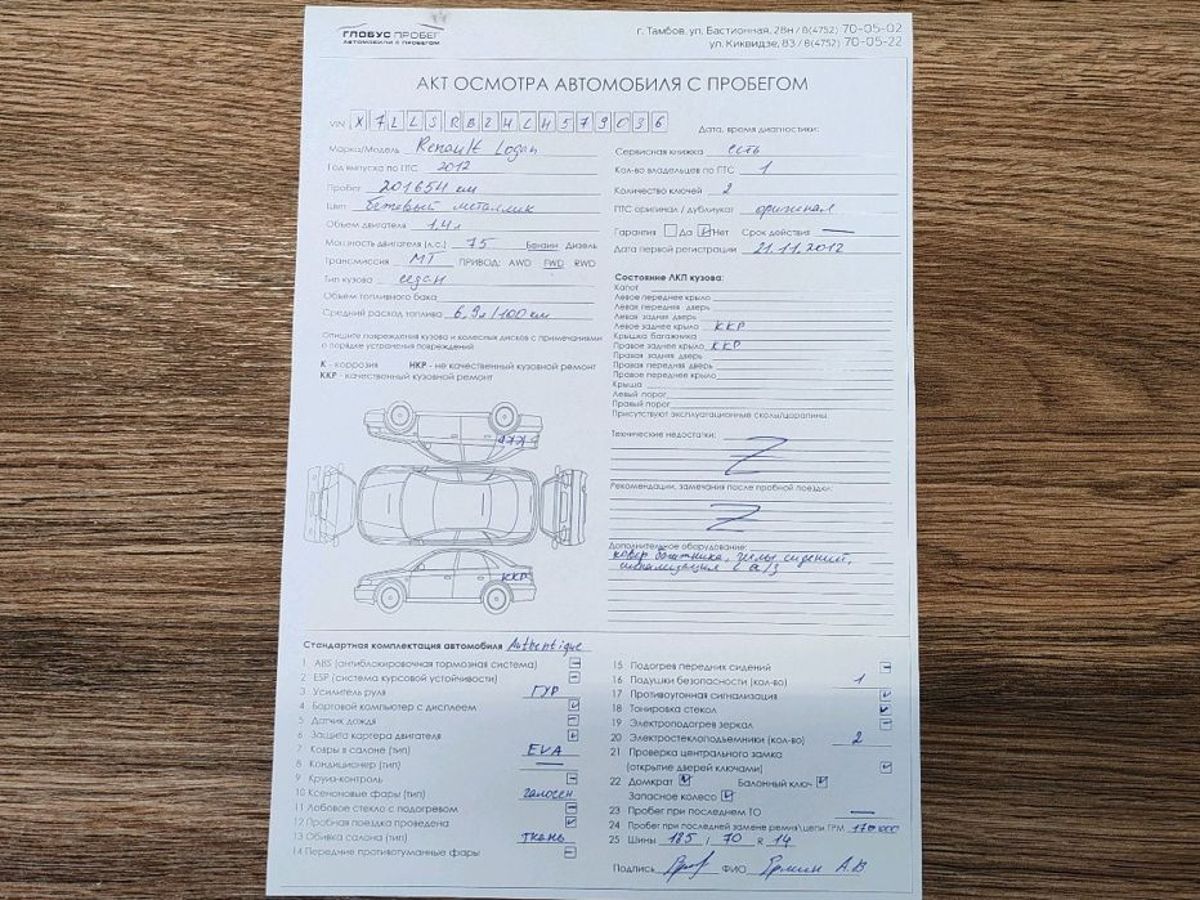 ГЛОБУС ПРОБЕГ
АВТОМОБИЛИ С ПРОБЕГОМ
г. Тамбов, ул. Бастионная, 28н / 8(4752) 70-05-02
ул. Киквидзе, 83 / 8(4752) 70-05-22
АКТ ОСМОТРА АВТОМОБИЛЯ С ПРОБЕГОМ
VIN X7LLSRB2HLH579036
Марка/Модель Renault Logan
Год выпуска по ПТС 2012
Пробег 201654 км
Цвет бежевый металлик
Объем двигателя 1,4л
Мощность двигателя (л.с.) 75 Бензин Дизель
Трансмиссия МТ ПРИВОД: AWD FWD RWD
Тип кузова седан
Объем топливного бака
Средний расход топлива 6,9л/100км
Опишите повреждения кузова и колесных дисков с примечаниями
о порядке устранения повреждений
К - коррозия НКР - не качественный кузовной ремонт
ККР - качественный кузовной ремонт
ККР
ККР
Дата, время диагностики:
Сервисная книжка есть
Кол-во владельцев по ПТС 1
Количество ключей 2
ПТС оригинал / дубликат оригинал
Гарантия Да Нет Срок действия —
Дата первой регистрации 21.11.2012
Состояние ЛКП кузова:
Капот
Левое переднее крыло
Левая передняя дверь
Левая задняя дверь
Левое заднее крыло ККР
Крышка багажника
Правое заднее крыло ККР
Правая задняя дверь
Правая передняя дверь
Правое переднее крыло
Крыша
Левый порог
Правый порог
Присутствуют эксплуатационные сколы/царапины
Технические недостатки: Z
Рекомендации, замечания после пробной поездки:
Z
Дополнительное оборудование:
ковер багажника, чехлы сидений,
сигнализация с а/з
Стандартная комплектация автомобиля Authentique
1 ABS (антиблокировочная тормозная система) –
2 ESP (система курсовой устойчивости) –
3 Усилитель руля ГУР
4 Бортовой компьютер с дисплеем
5 Датчик дождя –
6 Защита картера двигателя
7 Ковры в салоне (тип) EVA
8 Кондиционер (тип) —
9 Круиз-контроль –
10 Ксеноновые фары (тип) галоген
11 Лобовое стекло с подогревом –
12 Пробная поездка проведена
13 Обивка салона (тип) ткань
14 Передние противотуманные фары –
15 Подогрев передних сидений –
16 Подушки безопасности (кол-во) 1
17 Противоугонная сигнализация
18 Тонировка стекол
19 Электроподогрев зеркал –
20 Электростеклоподъемники (кол-во) 2
21 Проверка центрального замка
(открытие дверей ключами)
22 Домкрат Балонный ключ
Запасное колесо
23 Пробег при последнем ТО —
24 Пробег при последней замене ремня\цепи ГРМ
25 Шины 185 / 70 R 14
Подпись ФИО А.В